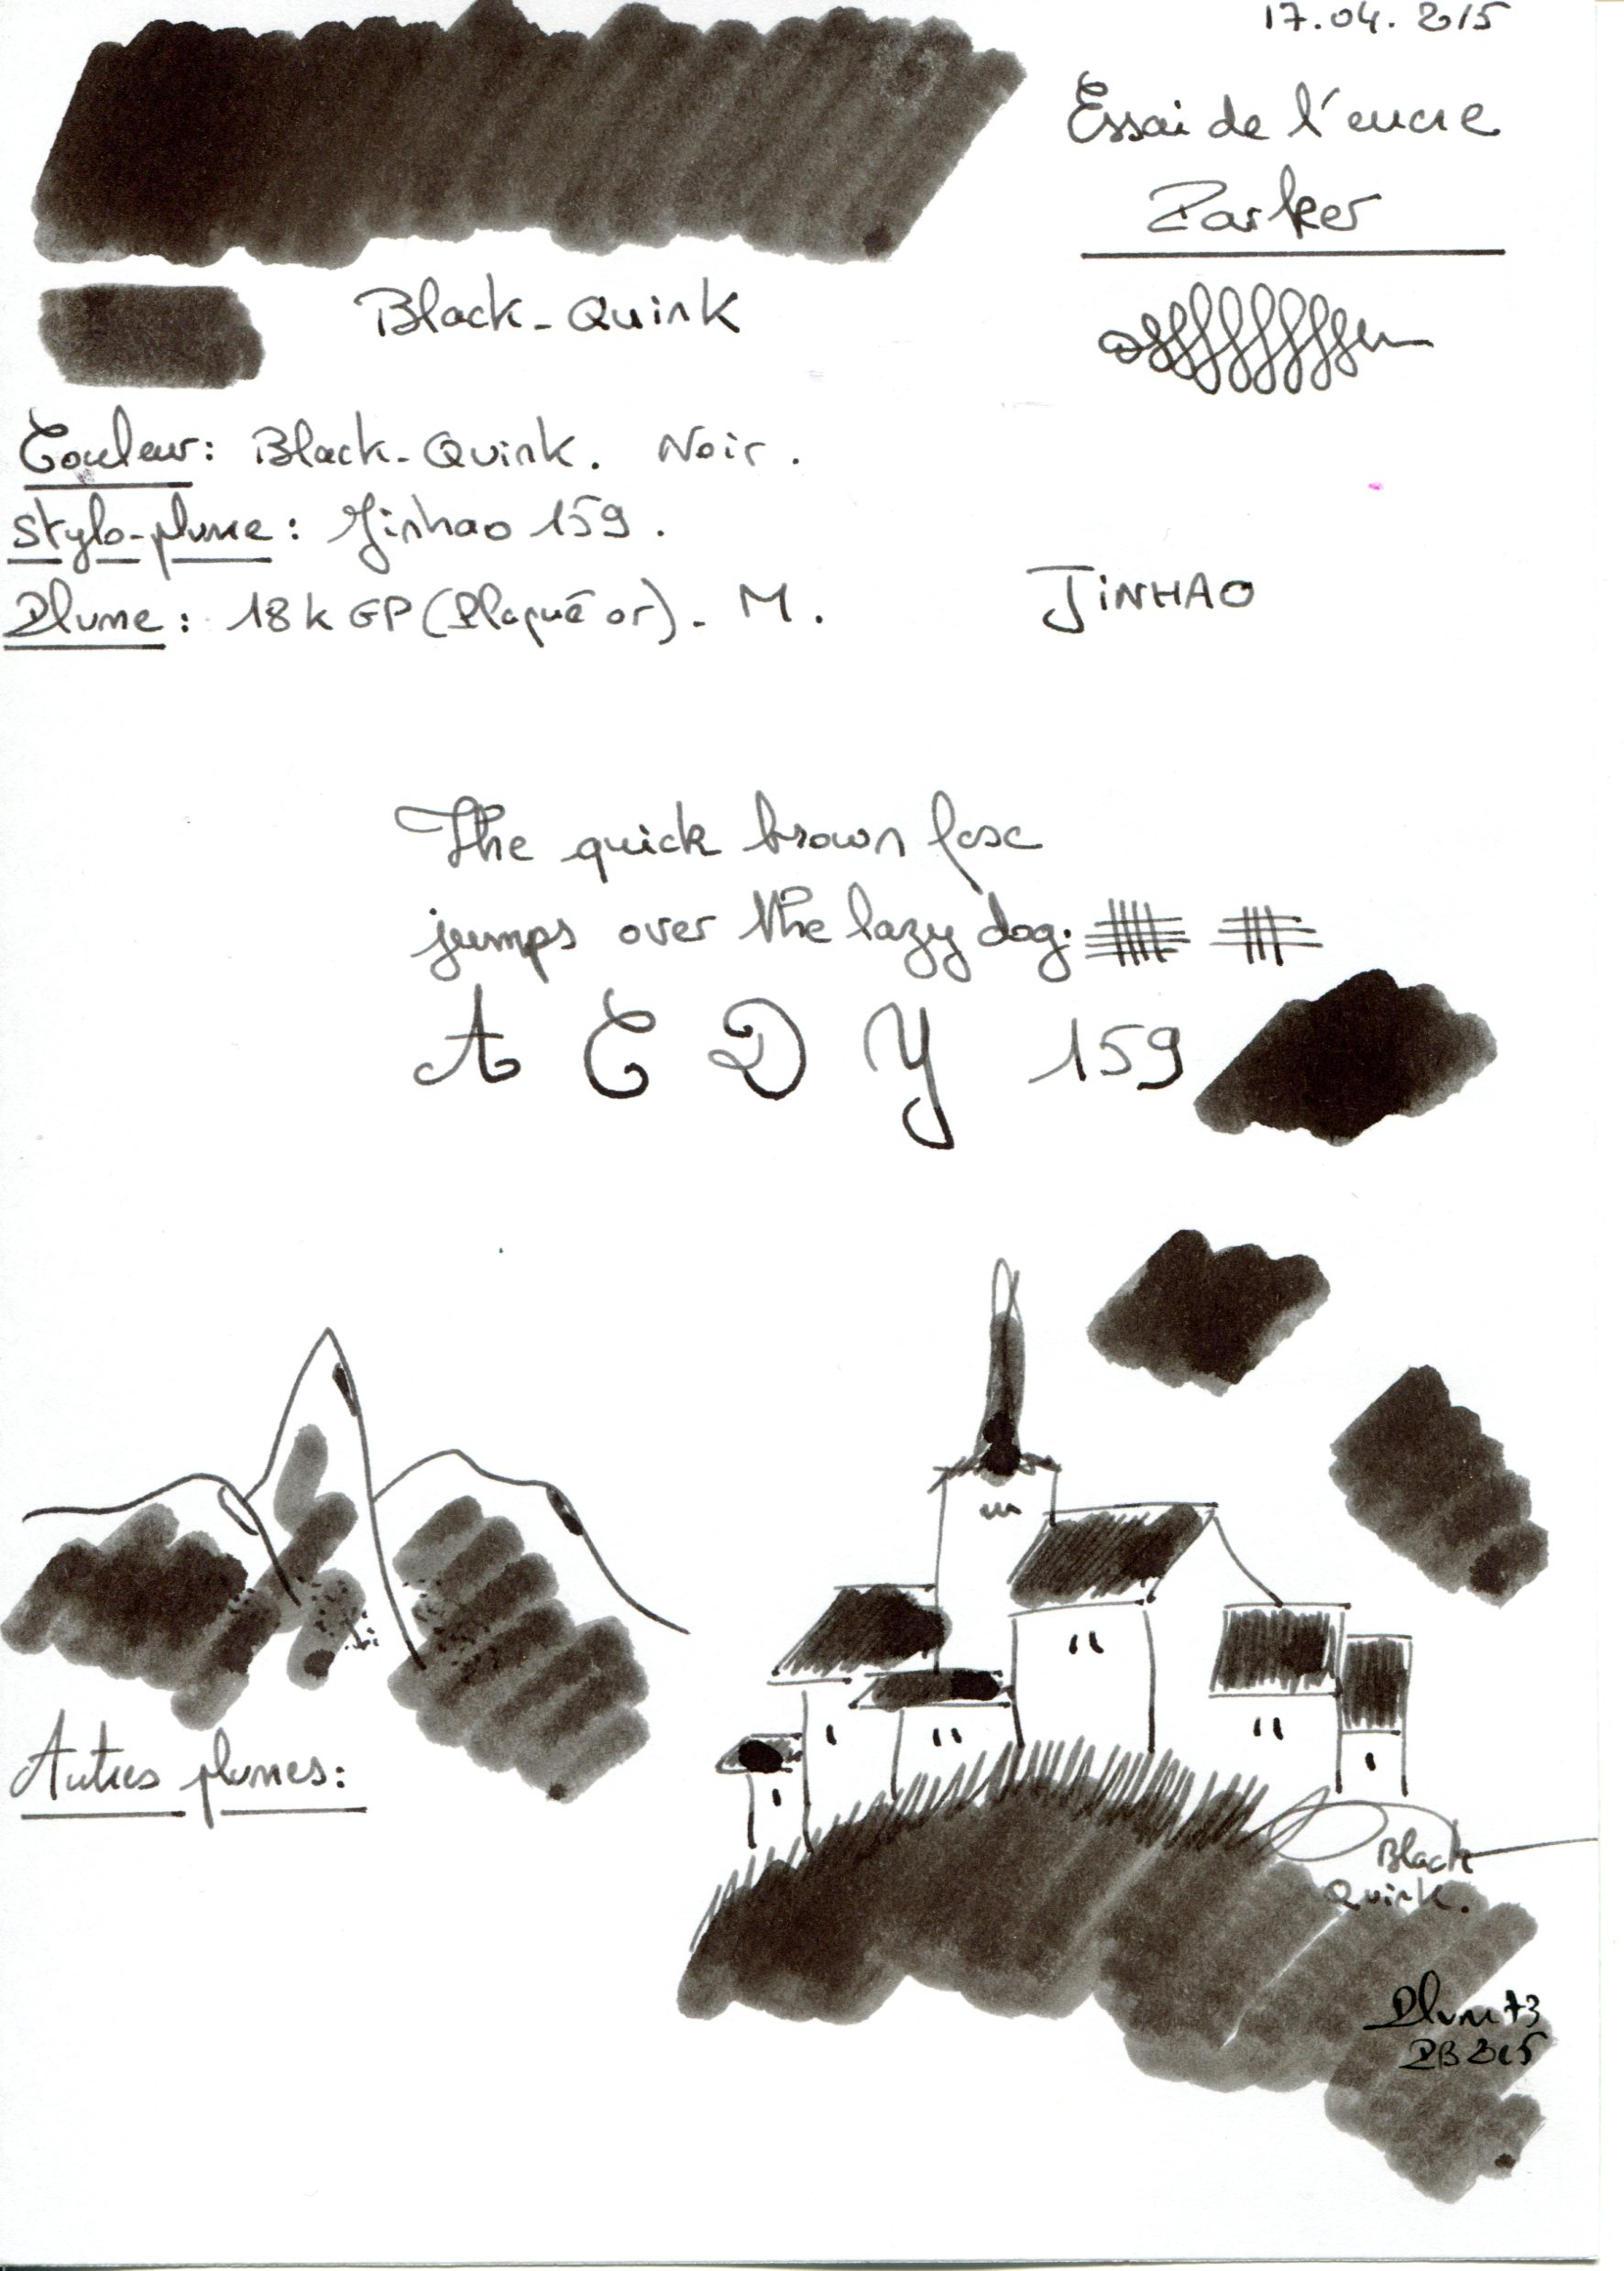 17.04.2015
Essai de l'encre
Parker
Black-Quink
Couleur: Black-Quink. Noir.
Stylo-plume: Jinhao 159.
Plume: 18k GP (Plaqué or). M.
JiNHAO
The quick brown fox
jumps over the lazy dog.
A C D Y 159
Autres plumes:
Black
Quink.
Plume73
PB 2015